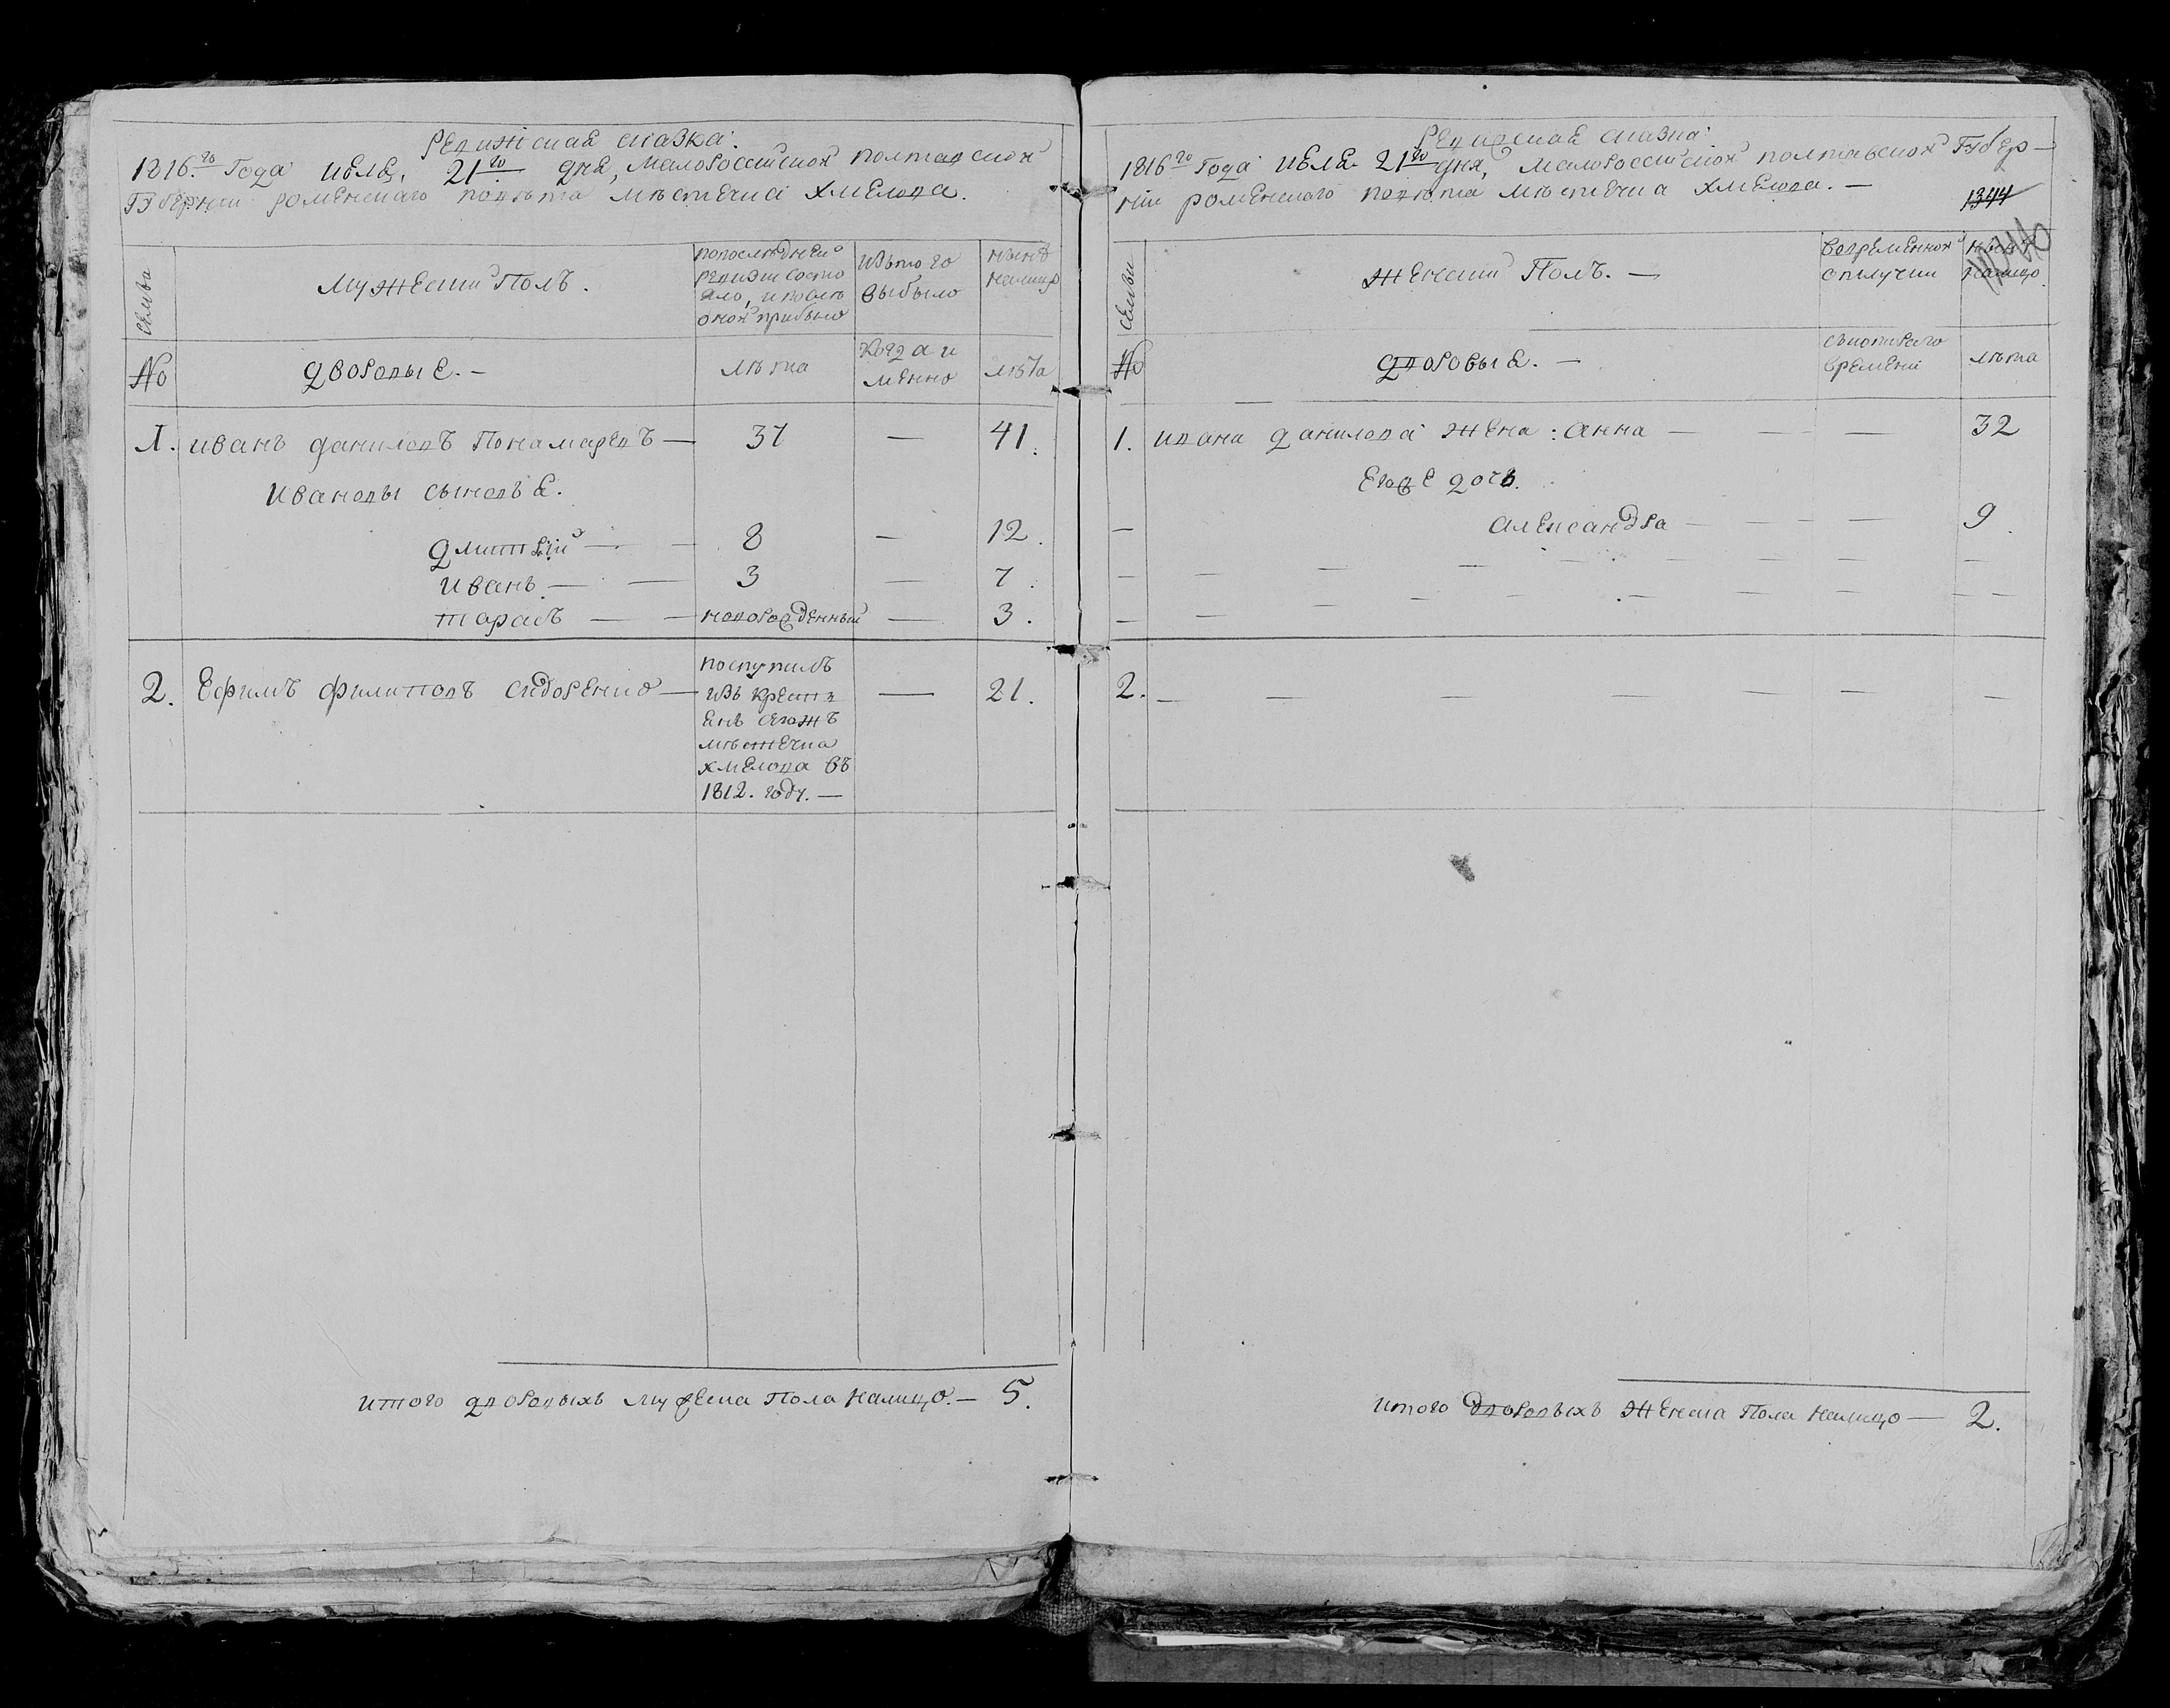 Ревижская сказка.
1816.го Года июля, 21го дня, Малороссийской Полтавской
Губернии роменскаго повѣта мѣстечка Хмелова.
Семьи
Мужеский Полъ.
Попоследней
ревизии состо
яло, и после
оной прибыло
Изъ того
выбыло
Ныне
налицо
№
дворовые. —
лѣта
Когда и
менно
лѣта
1. Иванъ даниловъ Пономаревъ — 37 — 41.
Ивановы сыновья.
дмитрій — — 8 — 12.
Иванъ. — — 3 — 7.
тарасъ — — новорожденный — 3.
2. Ефимъ филиповъ сидоренко — — 21.
поступилъ
изъ крестя
янъ тогожъ
мѣстечка
хмелова въ
1812. году. —
Ревижская сказка.
1816го Года июля 21го дня, Малороссийской полтавской Губер—
нии роменскаго повѣта мѣстечка хмелова. —
1344
Семьи
Женский Полъ. —
Вовременной
отлучки
Ныне
налицо
№
дворовые. —
съкотораго
времени
лѣта
1. Ивана данилова жена: анна — — — 32
Егоже дочь.
— александра — — — — 9.
2. — — — — — — — —
Итого дворовыхъ мужеска Пола налицо. — 5.
Итого дворовыхъ женска Пола налицо — 2.